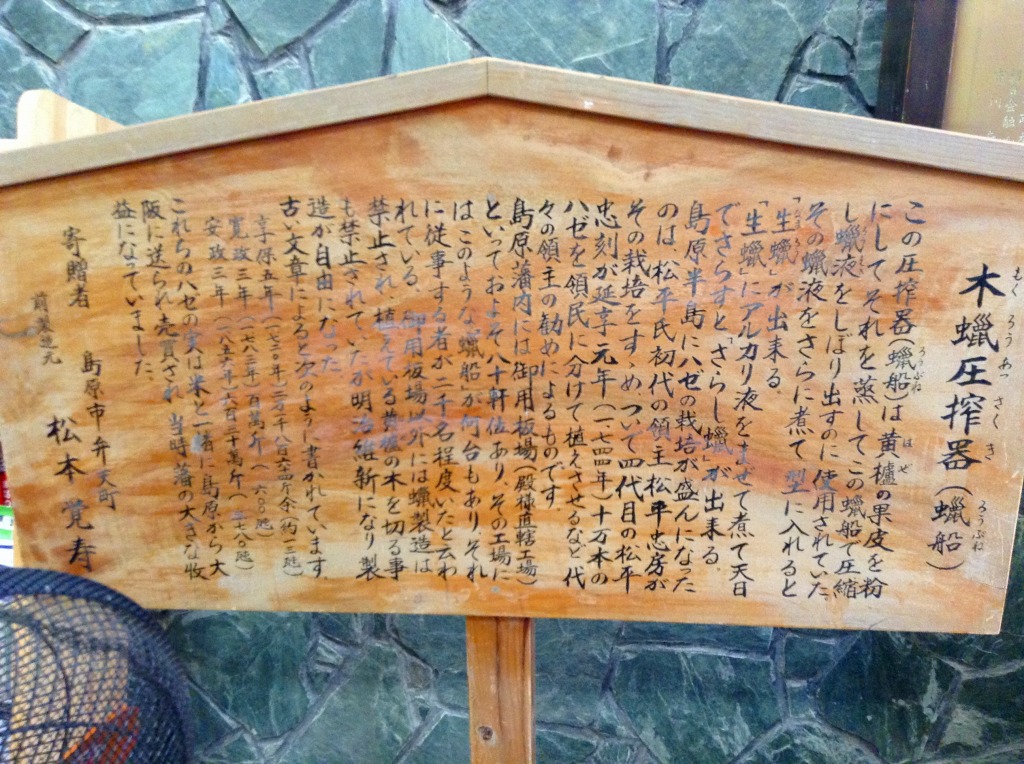 木蠟圧搾器(蠟船)
この圧搾器(蠟船)は黄櫨の果皮を粉
にしてそれを蒸してこの蠟船で圧縮
し蠟液をしぼり出すのに使用されていた
その蠟液をさらに煮て型に入れると
「生蠟」が出来る。
「生蠟」にアルカリ液をませて煮て天日
でさらすと「さらし蠟」が出来る。
島原半島にハゼの栽培が盛んになった
のは、松平氏初代の領主松平忠房が
その栽培をすゝめ、ついで四代目の松平
忠刻が延享元年(一七四四年)十万本の
ハゼを領民に分けて植えさせるなど、代
々の領主の勧めによるものです
島原藩内には御用板場(殿様直轄工場)
といっておよそ八十軒位あり、その工場に
はこのような「蠟船」が何台もあり、それ
に従事する者が二千名程度いたと云わ
れている。御用板場以外には蠟製造は
禁止され、植えている黄櫨の木を切る事
も禁止されていたが明治維新になり製
造が自由になった
古い文章によると次のように書かれています
享保五年(一七二〇年)二万千八百六十四斤余(約一三屯)
寛政三年(一七八三年)百萬斤(六〇〇屯)
安政三年(一八五六年)百三十萬斤(七八〇屯)
これらのハゼの実は米と一緒に島原から大
阪に送られ売買され、当時藩の大きな収
益になっていました。
寄贈者 島原市弁天町
松本覚寿